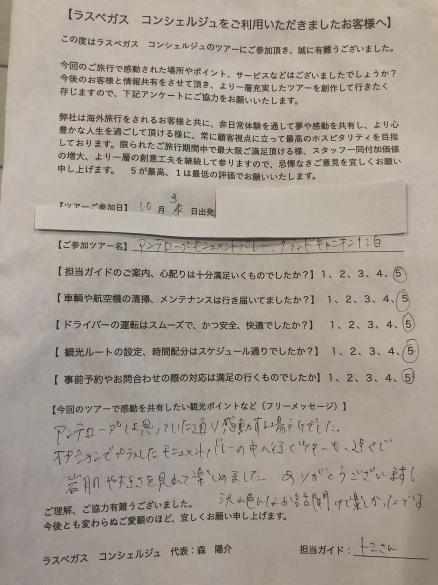 【ラスベガス　コンシェルジュをご利用いただきましたお客様へ】
この度はラスベガス　コンシェルジュのツアーにご参加頂き、誠に有難うございました。
今回のご旅行で感動された場所やポイント、サービスなどはございましたでしょうか？
今後のお客様と情報共有をさせて頂き、より一層充実したツアーを創作して行きたく
存じますので、下記アンケートにご協力をお願いいたします。
弊社は海外旅行をされるお客様と共に、非日常体験を通して夢や感動を共有し、より心
豊かな人生を過ごして頂ける様に、常に顧客視点に立って最高のホスピタリティを目指
しております。限られたご旅行期間中で最大限ご満足頂ける様、スタッフ一同付加価値
の増大、より一層の創意工夫を継続して参りますので、忌憚なきご意見を宜しくお願い
申し上げます。　5が最高、1は最低の評価でお願いいたします。
【ツアーご参加日】 10 月 3 日出発
【ご参加ツアー名】 アンテロープモニュメントバレー、グランドキャニオン1泊
【担当ガイドのご案内、心配りは十分満足いくものでしたか？】 1、2、3、4、5
【車輌や航空機の清掃、メンテナンスは行き届いてましたか？】 1、2、3、4、5
【ドライバーの運転はスムーズで、かつ安全、快適でしたか？】 1、2、3、4、5
【 観光ルートの設定、時間配分はスケジュール通りでしたか？】 1、2、3、4、5
【 事前予約やお問合わせの際の対応は満足の行くものでしたか】 1、2、3、4、5
【今回のツアーで感動を共有したい観光ポイントなど（フリーメッセージ）】
アンテロープは思っていた通り感動する場所でした。
オプションでプラスしたモニュメントバレーの中へ行くツアーも、近くで
岩肌や大きさを見れて楽しめました。ありがとうございます！
ご理解、ご協力有難うございました。
沢山色んなお話を聞けて楽しかったです
今後とも変わらぬご愛顧のほど、宜しくお願い申し上げます。
ラスベガス　コンシェルジュ　代表：森　陽介
担当ガイド： トミさん